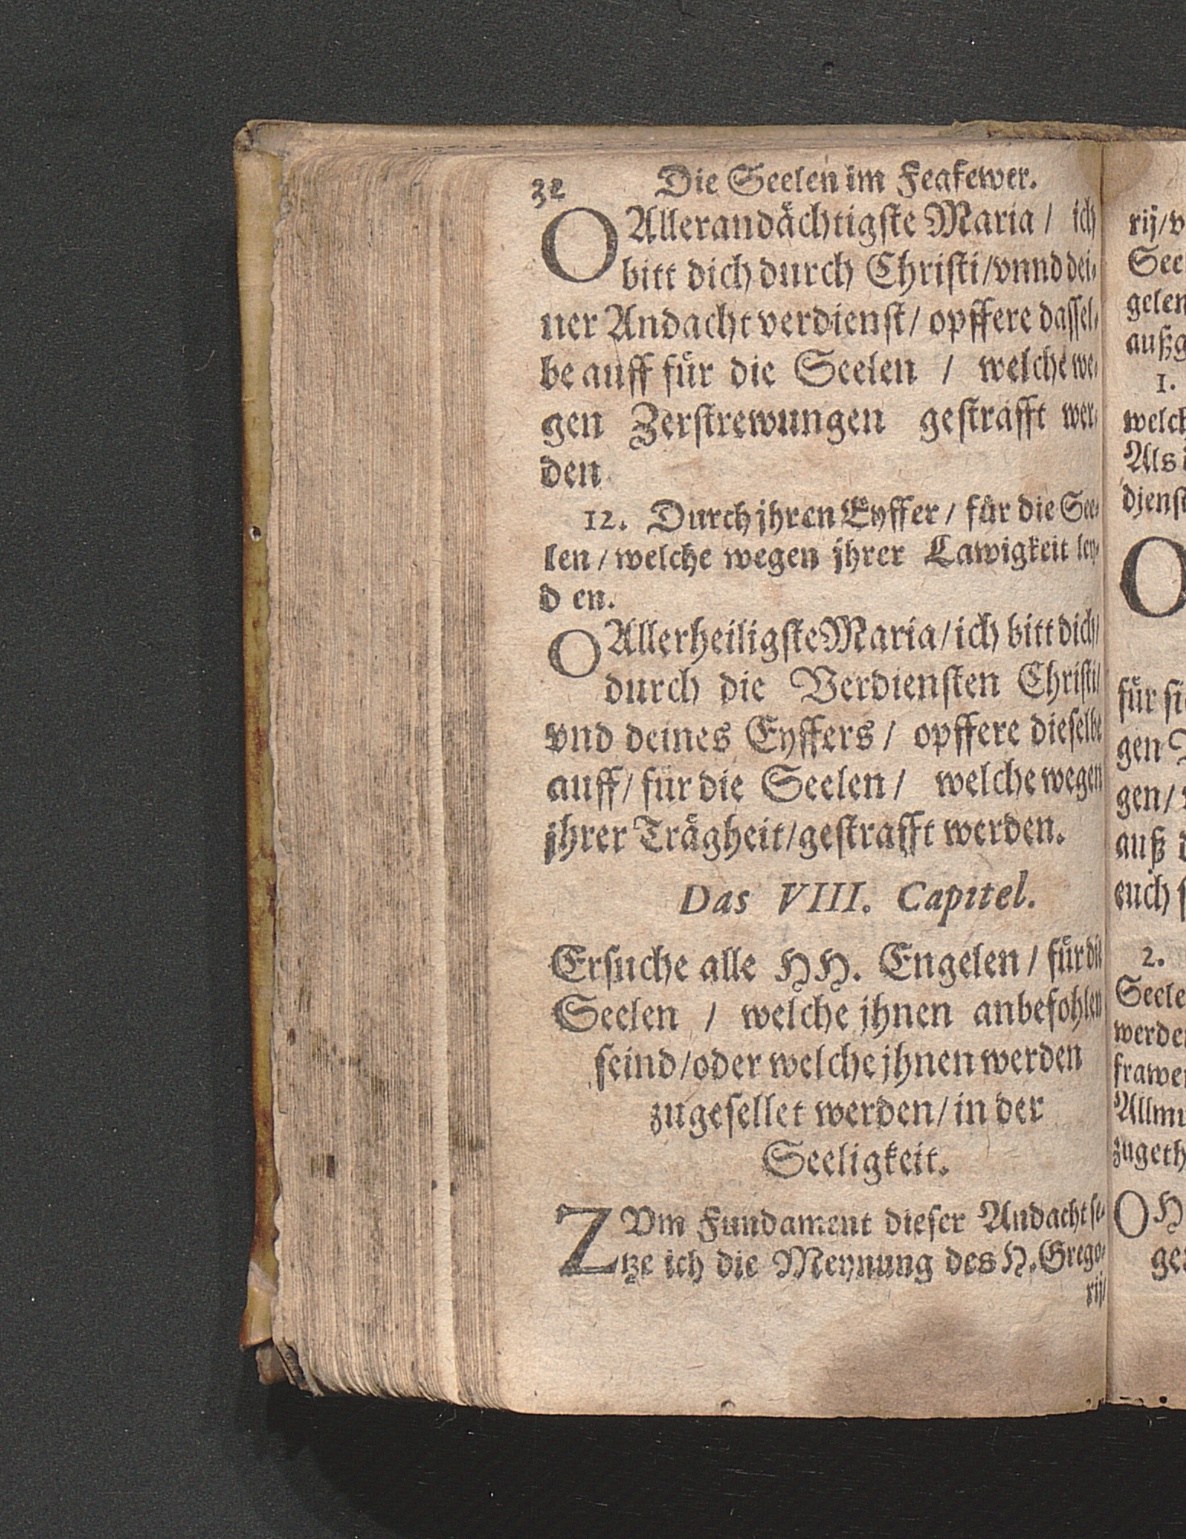 32 Die Seelen im Feafewer.
O Allerandächtigste Maria / ich
bitt dich durch Christi/vnnd dei-
ner Andacht verdienst/ opffere dassel-
be auff für die Seelen / welche we-
gen Zerstrewungen gestrafft wer-
den
12. Durch jhren Eyffer / für die See-
len / welche wegen jhrer Lawigkeit ley-
d en.
O Allerheiligste Maria/ich bitt dich/
durch die Verdiensten Christi/
vnd deines Eyffers / opffere dieselbe
auff/ für die Seelen / welche wegen
jhrer Trägheit/gestrafft werden.
Das VIII. Capitel.
Ersuche alle HH. Engelen / für die
Seelen / welche jhnen anbefohlen
seind/oder welche jhnen werden
zugesellet werden/ in der
Seeligkeit.
ZVm Fundament dieser Andacht se-
tze ich die Meynung des H. Grego-
rij/
rij/v
See
gelen
außg
1.
welch
Als d
djenst
O
für si
gen
gen/
auß d
euch s
2.
Seele
werde
frawe
Allmu
zugeth
O H
ge